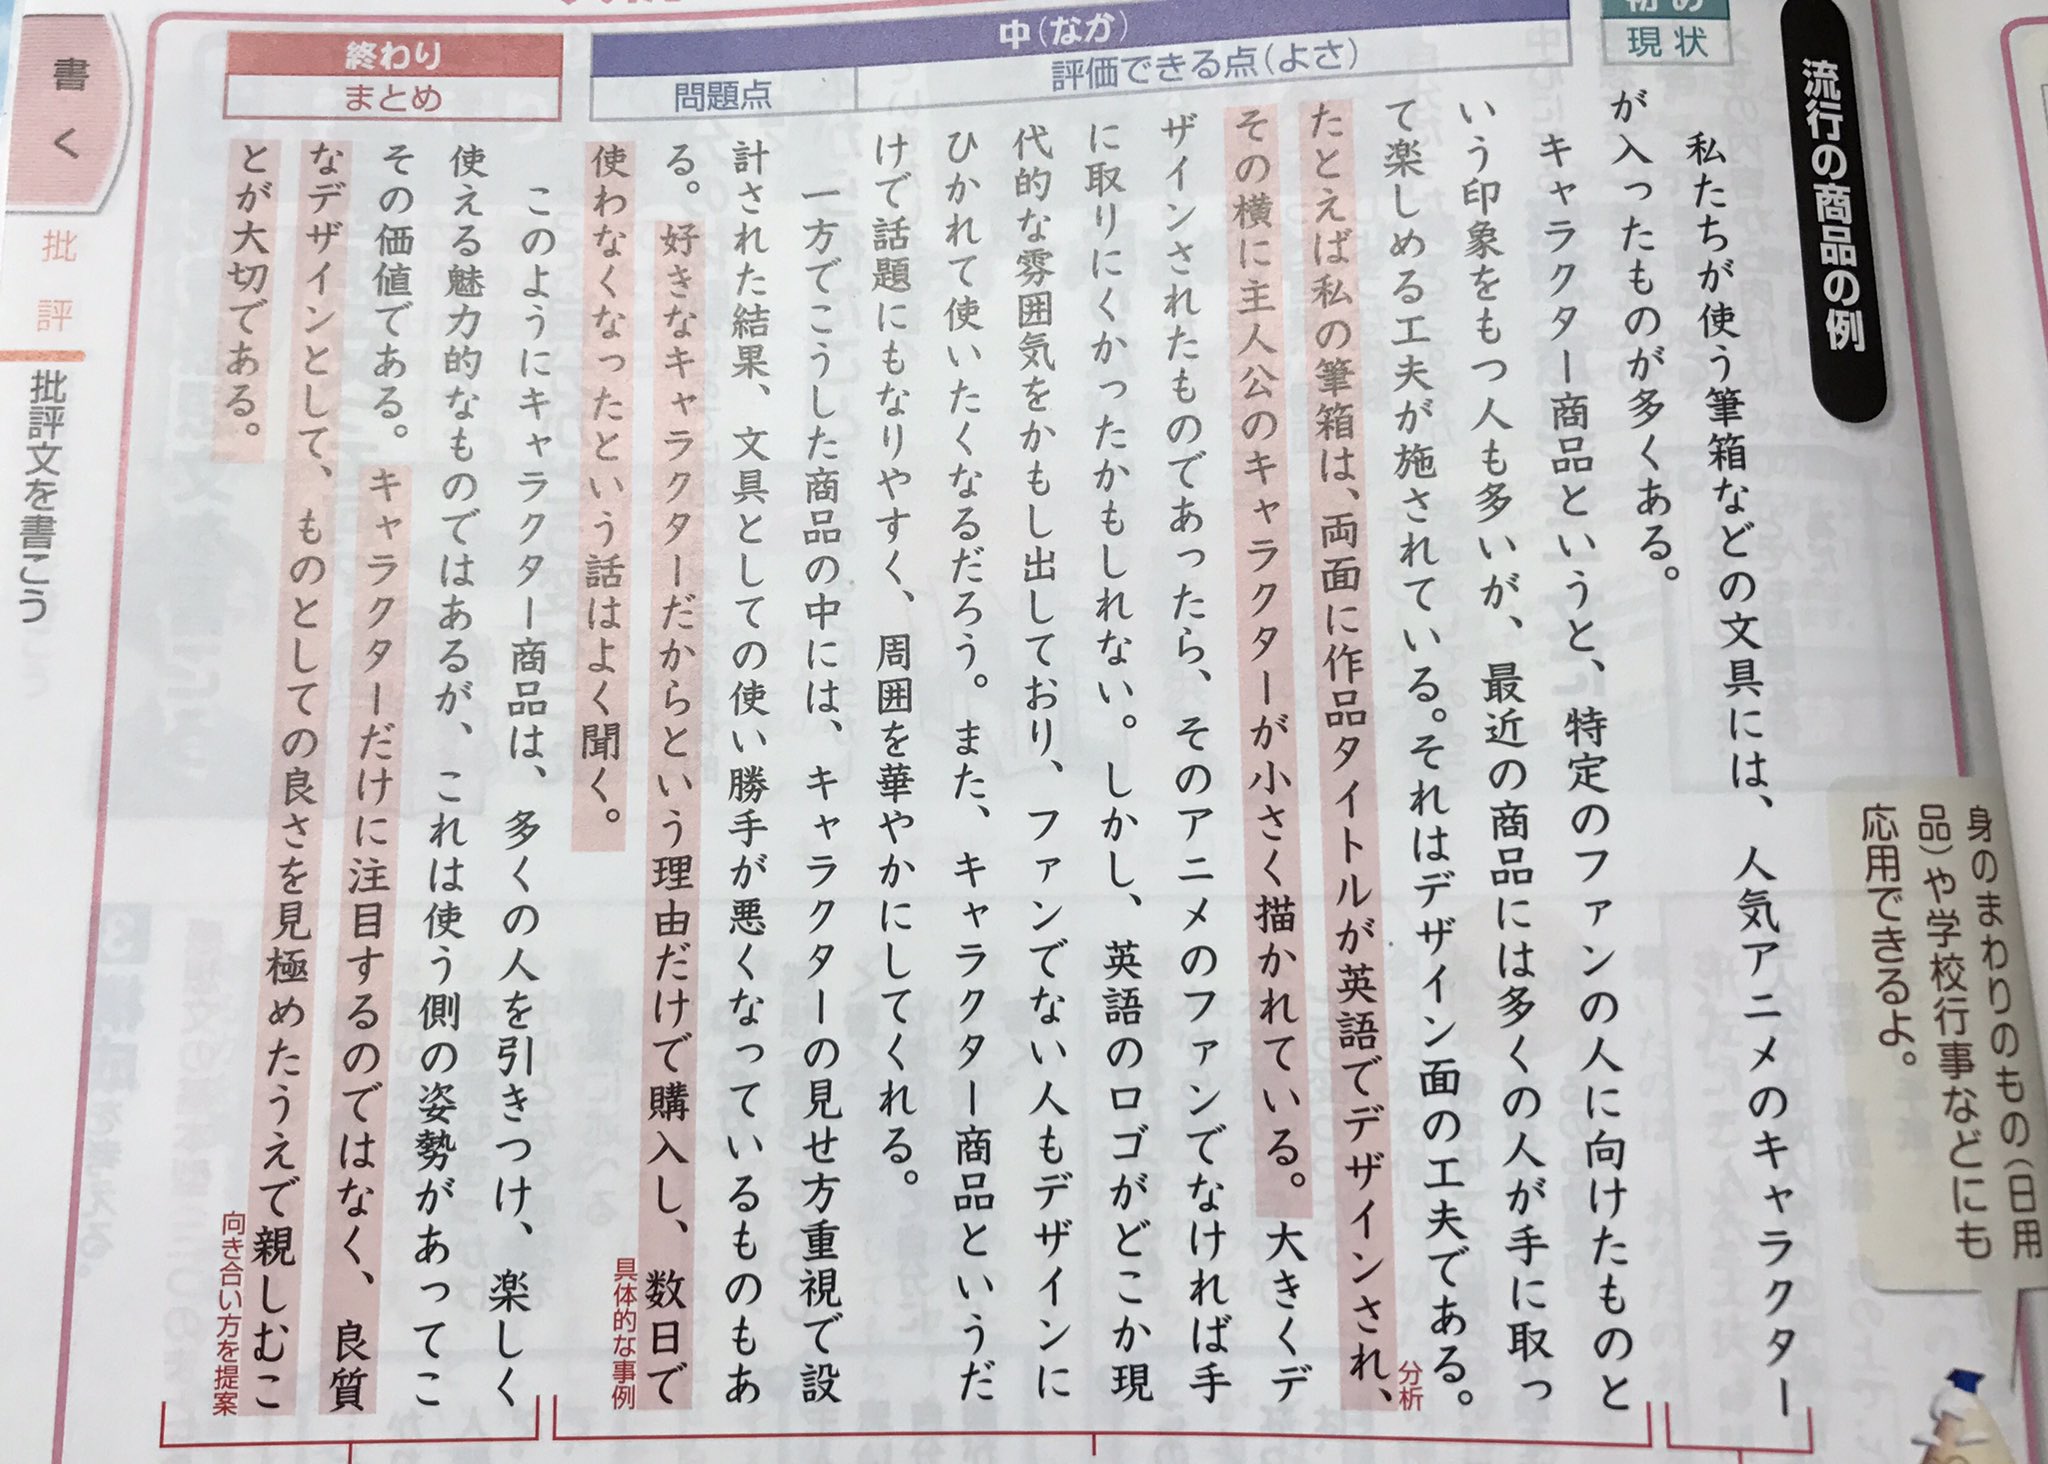 流行の商品の例
身のまわりのもの(日用
品)や学校行事などにも
応用できるよ。
初め
現状
中(なか)
評価できる点(よさ)
問題点
終わり
まとめ
私たちが使う筆箱などの文具には、人気アニメのキャラクター
が入ったものが多くある。
キャラクター商品というと、特定のファンの人に向けたものと
いう印象をもつ人も多いが、最近の商品には多くの人が手に取っ
て楽しめる工夫が施されている。それはデザイン面の工夫である。
たとえば私の筆箱は、両面に作品タイトルが英語でデザインされ、
分析
その横に主人公のキャラクターが小さく描かれている。大きくデ
ザインされたものであったら、そのアニメのファンでなければ手
に取りにくかったかもしれない。しかし、英語のロゴがどこか現
代的な雰囲気をかもし出しており、ファンでない人もデザインに
ひかれて使いたくなるだろう。また、キャラクター商品というだ
けで話題にもなりやすく、周囲を華やかにしてくれる。
一方でこうした商品の中には、キャラクターの見せ方重視で設
計された結果、文具としての使い勝手が悪くなっているものもあ
る。好きなキャラクターだからという理由だけで購入し、数日で
具体的な事例
使わなくなったという話はよく聞く。
このようにキャラクター商品は、多くの人を引きつけ、楽しく
使える魅力的なものではあるが、これは使う側の姿勢があってこ
その価値である。キャラクターだけに注目するのではなく、良質
なデザインとして、ものとしての良さを見極めたうえで親しむこ
向き合い方を提案
とが大切である。
書く
批評
批評文を書こう